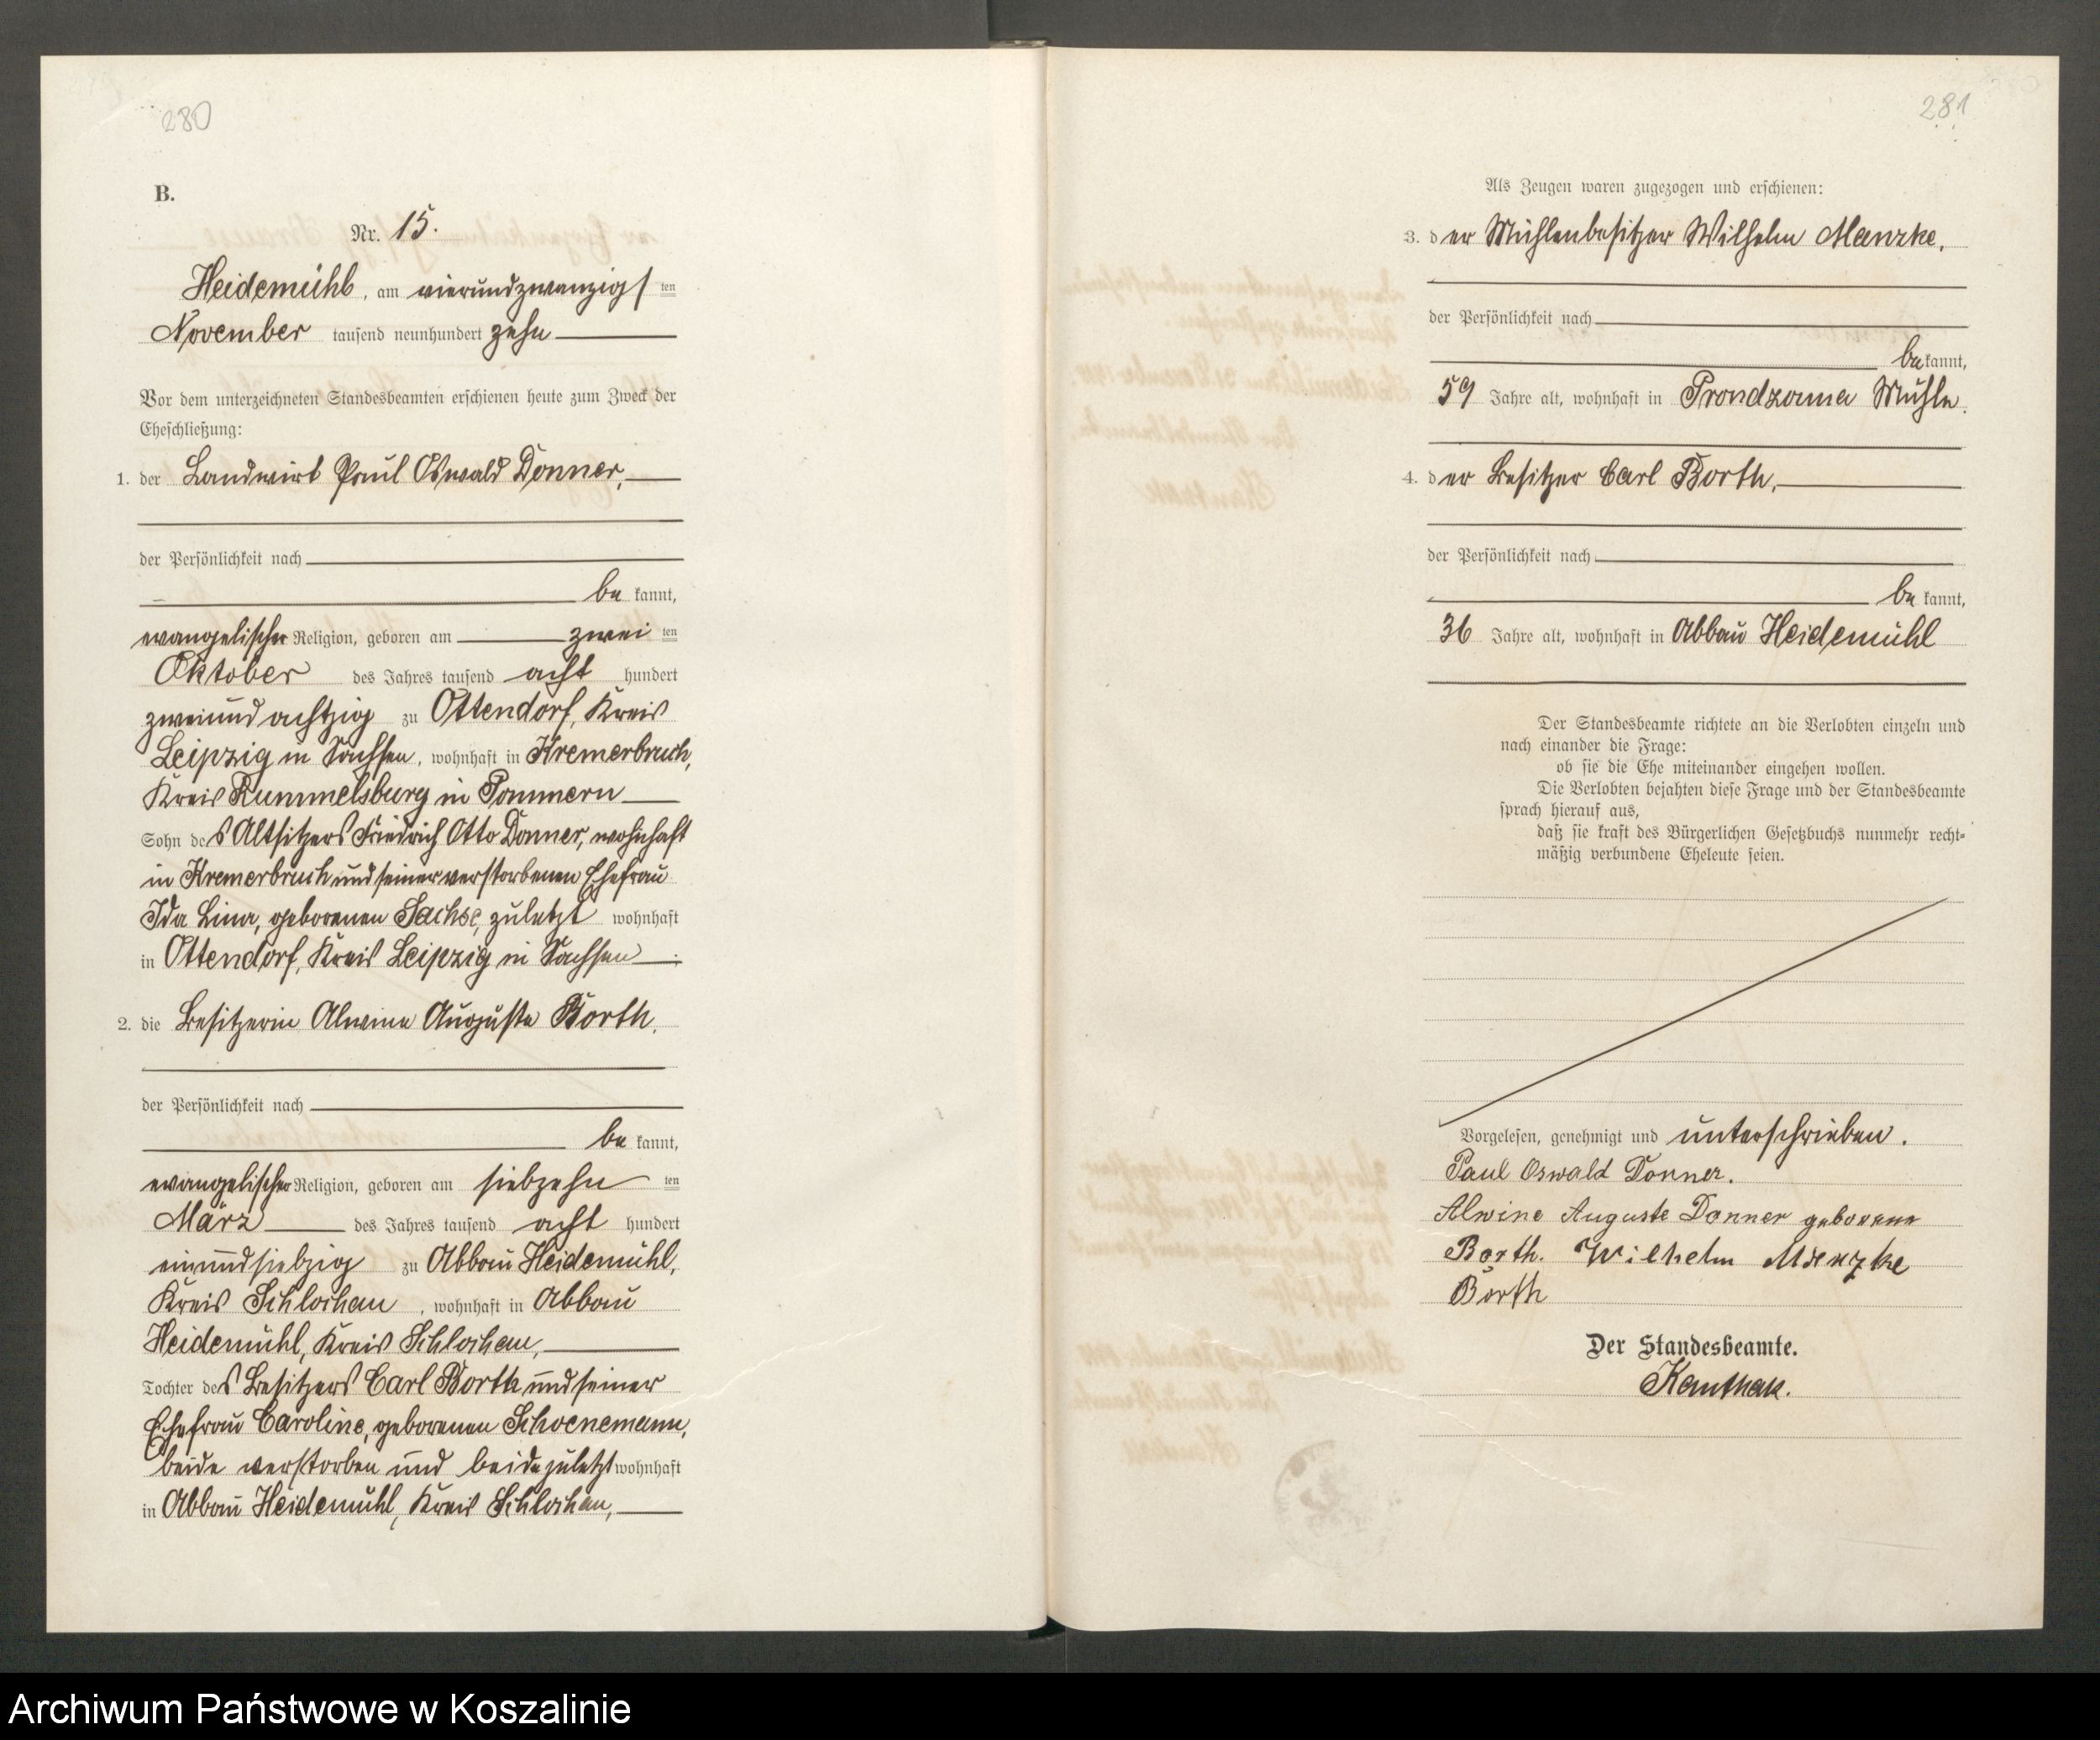 280
B.
Nr. 15.
Heidemühl, am vierundzwanzigsten
November tausend neunhundert zehn
Vor dem unterzeichneten Standesbeamten erschienen heute zum Zweck der
Eheschließung:
1. der Landwirt Paul Oswald Donner,
der Persönlichkeit nach
be kannt,
evangelischer Religion, geboren am zwei ten
Oktober des Jahres tausend acht hundert
zweiundachtzig zu Ottendorf, Kreis
Leipzig in Sachsen, wohnhaft in Kremerbruch,
Kreis Rummelsburg in Pommern
Sohn des Altsitzers Friedrich Otto Donner, wohnhaft
in Kremerbruch und seiner verstorbenen Ehefrau
Ida Lina, geborenen Sachse, zuletzt wohnhaft
in Ottendorf, Kreis Leipzig in Sachsen.
2. die Besitzerin Alwine Auguste Borth,
der Persönlichkeit nach
be kannt,
evangelischer Religion, geboren am siebzehn ten
März des Jahres tausend acht hundert
einundsiebzig zu Abbau Heidemühl,
Kreis Schlochau, wohnhaft in Abbau
Heidemühl, Kreis Schlochau,
Tochter des Besitzers Carl Borth und seiner
Ehefrau Caroline, geborenen Schoenemann,
beide verstorben und beide zuletzt wohnhaft
in Abbau Heidemühl, Kreis Schlochau,
281
Als Zeugen waren zugezogen und erschienen:
3. der Mühlenbesitzer Wilhelm Manzke,
der Persönlichkeit nach
be kannt,
59 Jahre alt, wohnhaft in Prondzonna Mühle.
4. der Besitzer Carl Borth,
der Persönlichkeit nach
be kannt,
36 Jahre alt, wohnhaft in Abbau Heidemühl
Der Standesbeamte richtete an die Verlobten einzeln und
nach einander die Frage:
ob sie die Ehe miteinander eingehen wollen.
Die Verlobten bejahten diese Frage und der Standesbeamte
sprach hierauf aus,
daß sie kraft des Bürgerlichen Gesetzbuchs nunmehr recht-
mäßig verbundene Eheleute seien.
Vorgelesen, genehmigt und unterschrieben.
Paul Oswald Donner.
Alwine Auguste Donner geborene
Borth. Wilhelm Manzke
Borth
Der Standesbeamte.
Kanthak.
Archiwum Państwowe w Koszalinie